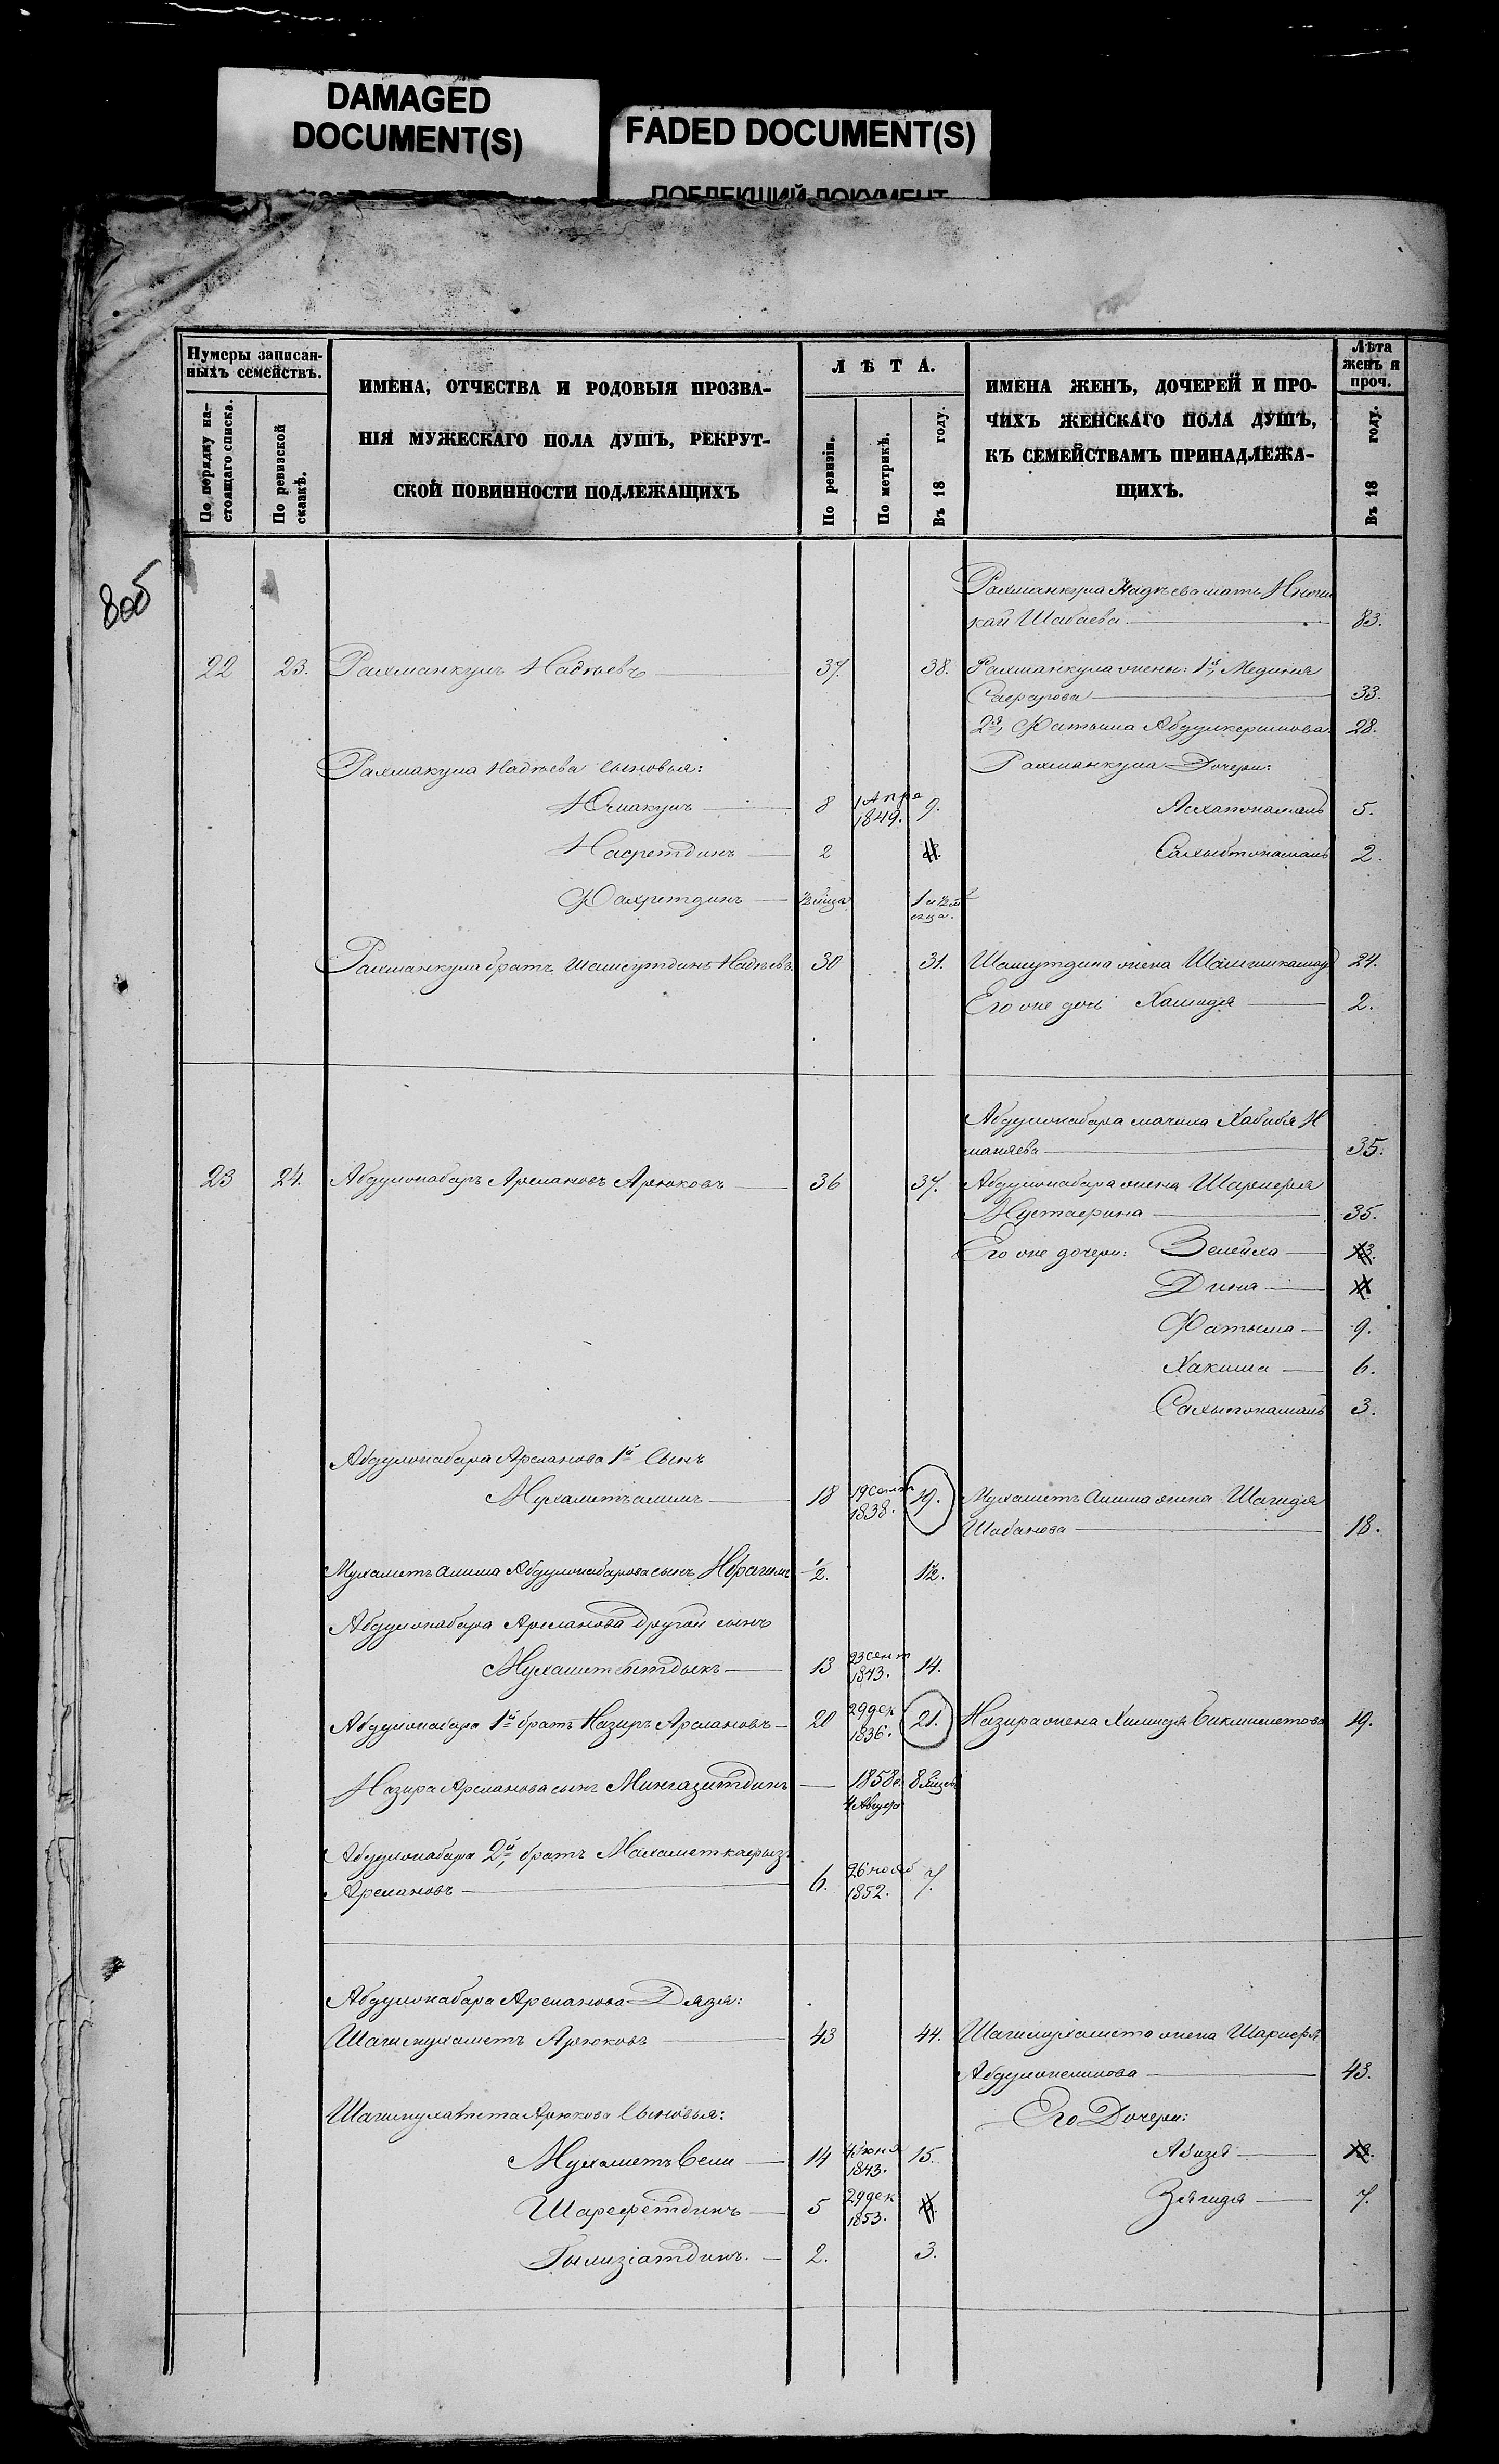 DAMAGED
DOCUMENT(S)
FADED DOCUMENT(S)
ПОБЛЕКШИЙ ДОКУМЕНТ
Нумеры записан-
ныхъ семействъ.
По порядку на-
стоящаго списка.
По ревизской
сказкѣ.
ИМЕНА, ОТЧЕСТВА И РОДОВЫЯ ПРОЗВА-
НІЯ МУЖЕСКАГО ПОЛА ДУШЪ, РЕКРУТ-
СКОЙ ПОВИННОСТИ ПОДЛЕЖАЩИХЪ
ЛѢТА.
По ревизіи.
По метрикѣ.
Въ 18 году.
ИМЕНА ЖЕНЪ, ДОЧЕРЕЙ И ПРО-
ЧИХЪ ЖЕНСКАГО ПОЛА ДУШЪ,
КЪ СЕМЕЙСТВАМЪ ПРИНАДЛЕЖА-
ЩИХЪ.
Лѣта
женъ и
проч.
Въ 18 году.
Рахманкула Надыева мать
кай Шабаева 83.
22 23. Рахманкулъ Надыевъ 37. 38. Рахманкула жены: 1я, Мединя
33.
2я, Фатыма Абдулкеримова. 28.
Рахмакула Надыева сыновья: Рахманкула Дочери:
Юмакулъ 8 1 Апре 1849. 9. 5.
Насретдинъ 2 2.
Фахретдинъ
Рахманкула братъ Шамсутдинъ Надыевъ. 30 31. Шамсутдина жена 24.
Его же дочь Хамидя 2.
Абдулжабара мачиха Хабибя И
маняева 35.
23 24. Абдулжабаръ Арслановъ Арюковъ 36 37. Абдулжабара жена
Мустафина 35.
Его же дочери: Зелейха
Дина
Фатыма 9.
Хакима 6.
3.
Абдулжабара Арсланова 1й сынъ
Мухаметъалимъ 18 19 Сент 1838. 19. Мухаметъ Алима жена Шагидя
Шабанова 18.
Мухаметъ Алима Абдулжабарова сынъ Ибрагимъ 1/2. 1 1/2.
Абдулжабара Арсланова другой сынъ
13 23 сент 1843. 14.
Абдулжабара 1й братъ Назиръ Арслановъ 20 29 дек 1836. 21. Назира жена Хамидя Бикмаметова 19.
Назира Арсланова сынъ Мингазитдинъ 1858 г. 4 Августа
Абдулжабара 2й, братъ
Арслановъ 6. 26 нояб 1852. 7.
Абдулжабара Арсланова Дядя:
Шагимухаметъ Арюковъ 43 44. Шагимухамета жена
43.
Шагимухамета Арюкова сыновья: Его Дочери:
Мухаметъ Вели 14 4 іюня 1843. 15. Азизя
Шарефетдинъ 5 29 дек 1853. Зягидя 7.
2. 3.